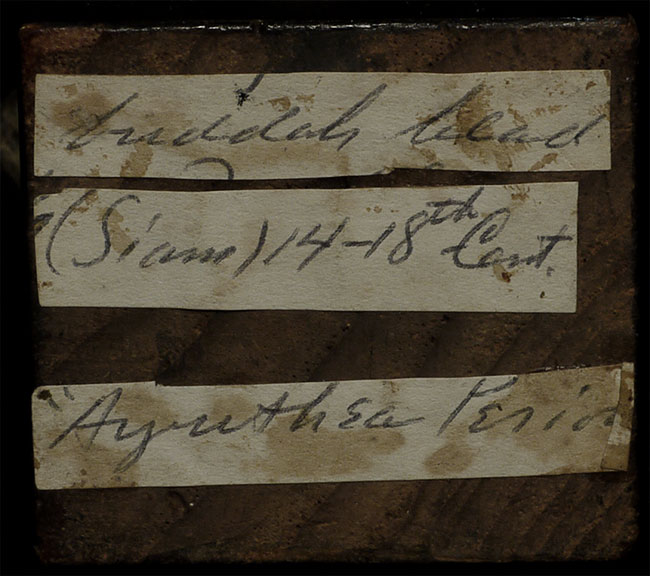 buddah head
(Siam) 14-18th Cent.
Ayruthea Period